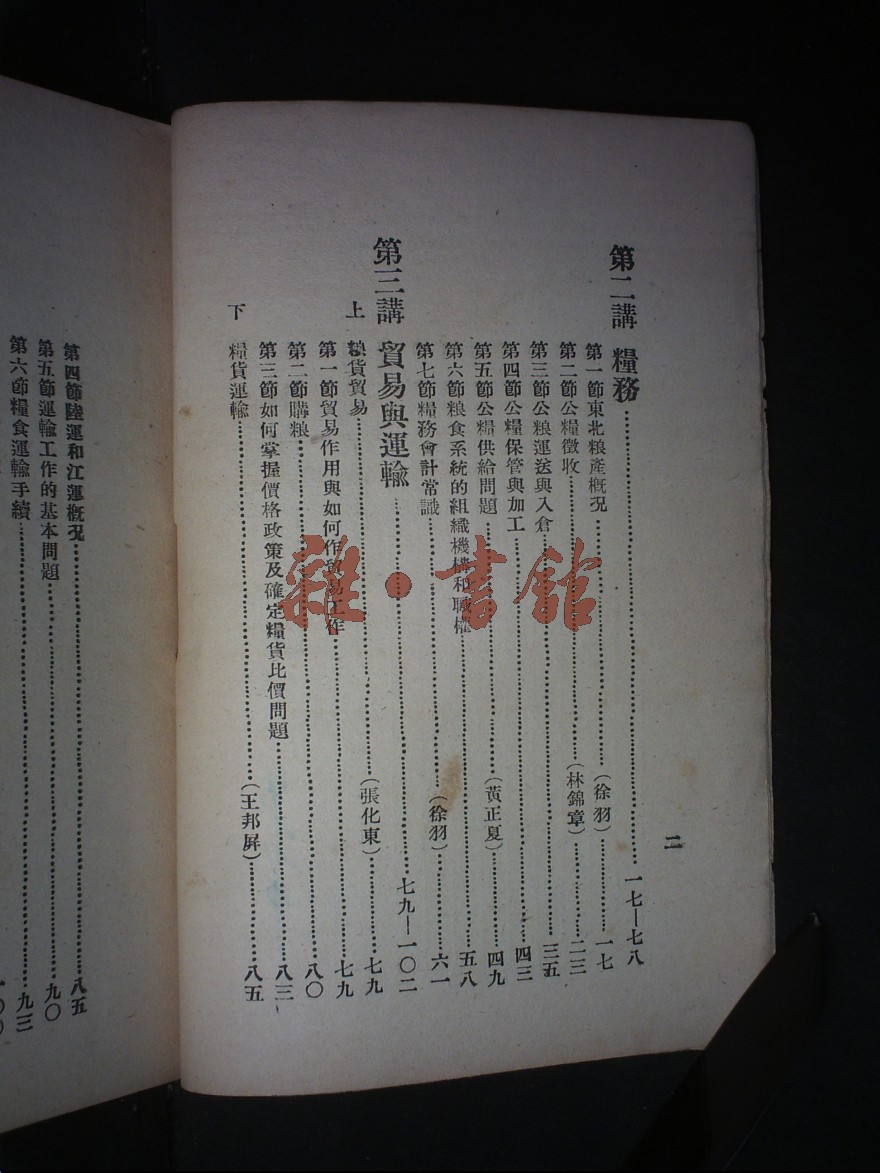 二
第二講 糧務……一七—七八
第一節東北粮產概況……(徐羽)……一七
第二節公糧徵收……(林錦章)……二三
第三節公粮運送與入倉……三五
第四節公糧保管與加工……四三
第五節公糧供給問題……(黃正夏)……四九
第六節粮食系統的組織機構和職權……五八
第七節糧務會計常識……(徐羽)……六一
第三講 貿易與運輸……七九—一〇二
上 粮貨貿易……(張化東)……七九
第一節貿易作用與如何作貿易工作……七九
第二節購粮……八〇
第三節如何掌握價格政策及確定糧貨比價問題……八三
下 糧貨運輸……(王邦屏)……八五
第四節陸運和江運概況……八五
第五節運輸工作的基本問題……九〇
第六節糧食運輸手續……九三
一〇〇
雜·書館